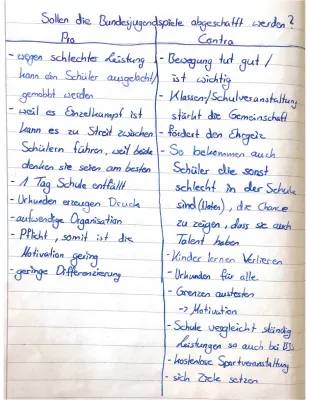 Sollen die Bundesjugendspiele abgeschafft werden?
Pro
- wegen schlechter Leistung
kann ein Schüler ausgelacht/
gemobbt werden
- weil es Einzelkampf ist
kann es zu Streit zwischen
Schülern führen, weil beide
denken sie seien am besten
- 1 Tag Schule entfällt
- Urkunden erzeugen Druck
- aufwendige Organisation
- Pflicht, somit ist die
Motivation gering
- geringe Differenzierung
Contra
- Bewegung tut gut /
ist wichtig
- Klassen/Schulveranstaltung
stärkt die Gemeinschaft
- Fördert den Ehrgeiz
- So bekommen auch
Schüler die sonst
schlecht in der Schule
sind (Noten), die Chance
zu zeigen, dass sie auch
Talent haben
- Kinder lernen Verlieren
- Urkunden für alle
- Grenzen austesten
-> Motivation
- Schule vergleicht ständig
Leistungen so auch bei BJS
- kostenlose Sportveranstaltung
- sich Ziele setzen